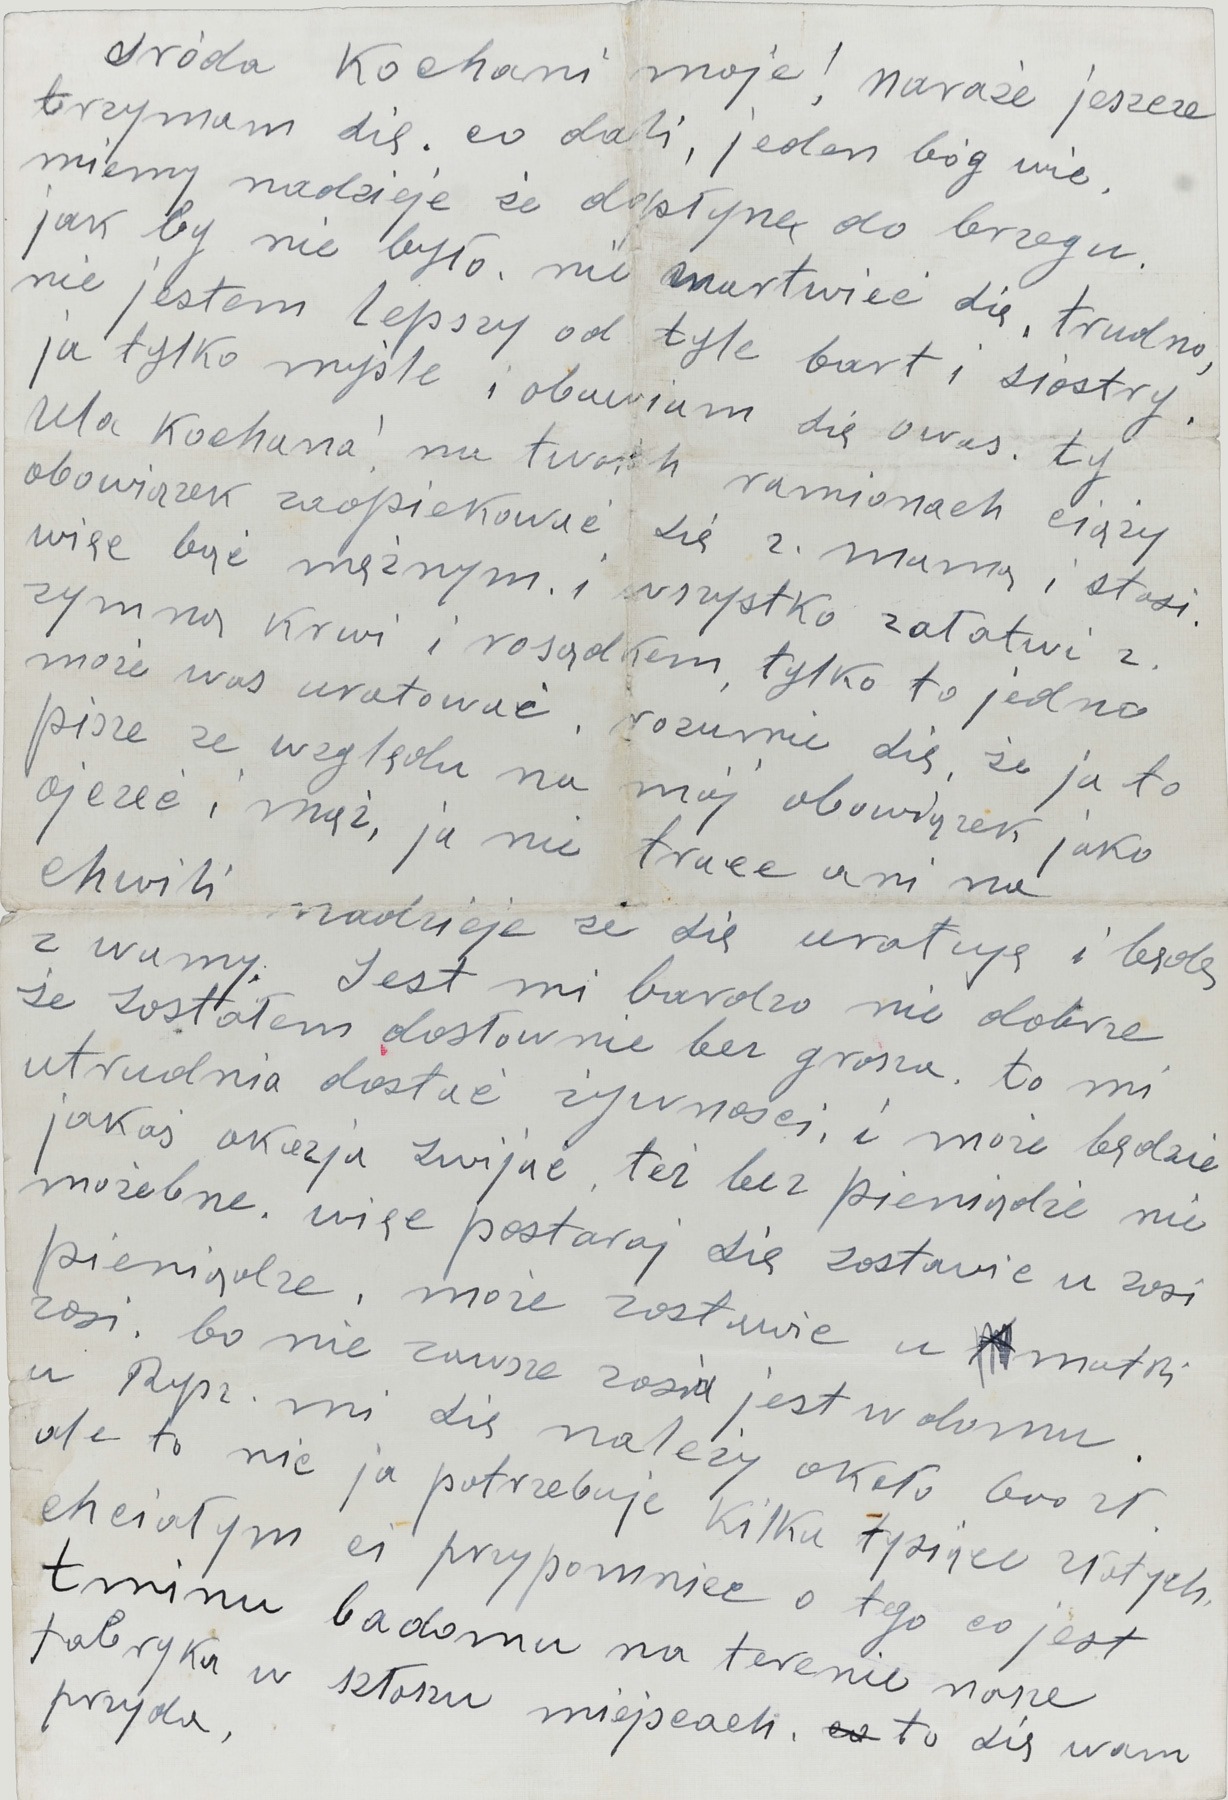 środa Kochani moje! naraże jeszcze
trzymam się. co dali, jeden bóg wie.
miemy nadzieje że dopłynę do brzegu.
jak by nie było. nie martwieć się, trudno,
nie jestem lepszy od tyle bart i siostry.
ja tylko myśle i obawiam się owas. ty
Ula Kochana! na twoich ramionach ciąży
obowiązek zaopiekować się z. mamą i stasi.
więc być mężnym. i wszystko załatwi z.
zymną krwi i rosądkem, tylko to jedno
może was uratować. rozumie się, że ja to
pisze ze względu na mój obowiązek jako
ojczeć i mąż, ja nie trace ani na
chwili nadzieje ze się uratuję i będę
z wamy. Jest mi bardzo nie dobrze
że zostałem dosłownie bez grosza. to mi
utrudnia dostać żywnosci, i może będzie
jakaś okazja zwijać, też bez pieniądze nie
możebne. więc postaraj się zostawic u zosi
pieniądze, może zostawic u matki
zosi. bo nie zawsze zosia jest w domu.
u Rysz. mi się należy około 600 zł.
ale to nie ja potrzebuje kilku tysiące złotych.
chciałym ci przypomniec o tego co jest
tminu badomu na terenie nasze
fabryka w szłosu miejscach. to się wam
przyda,